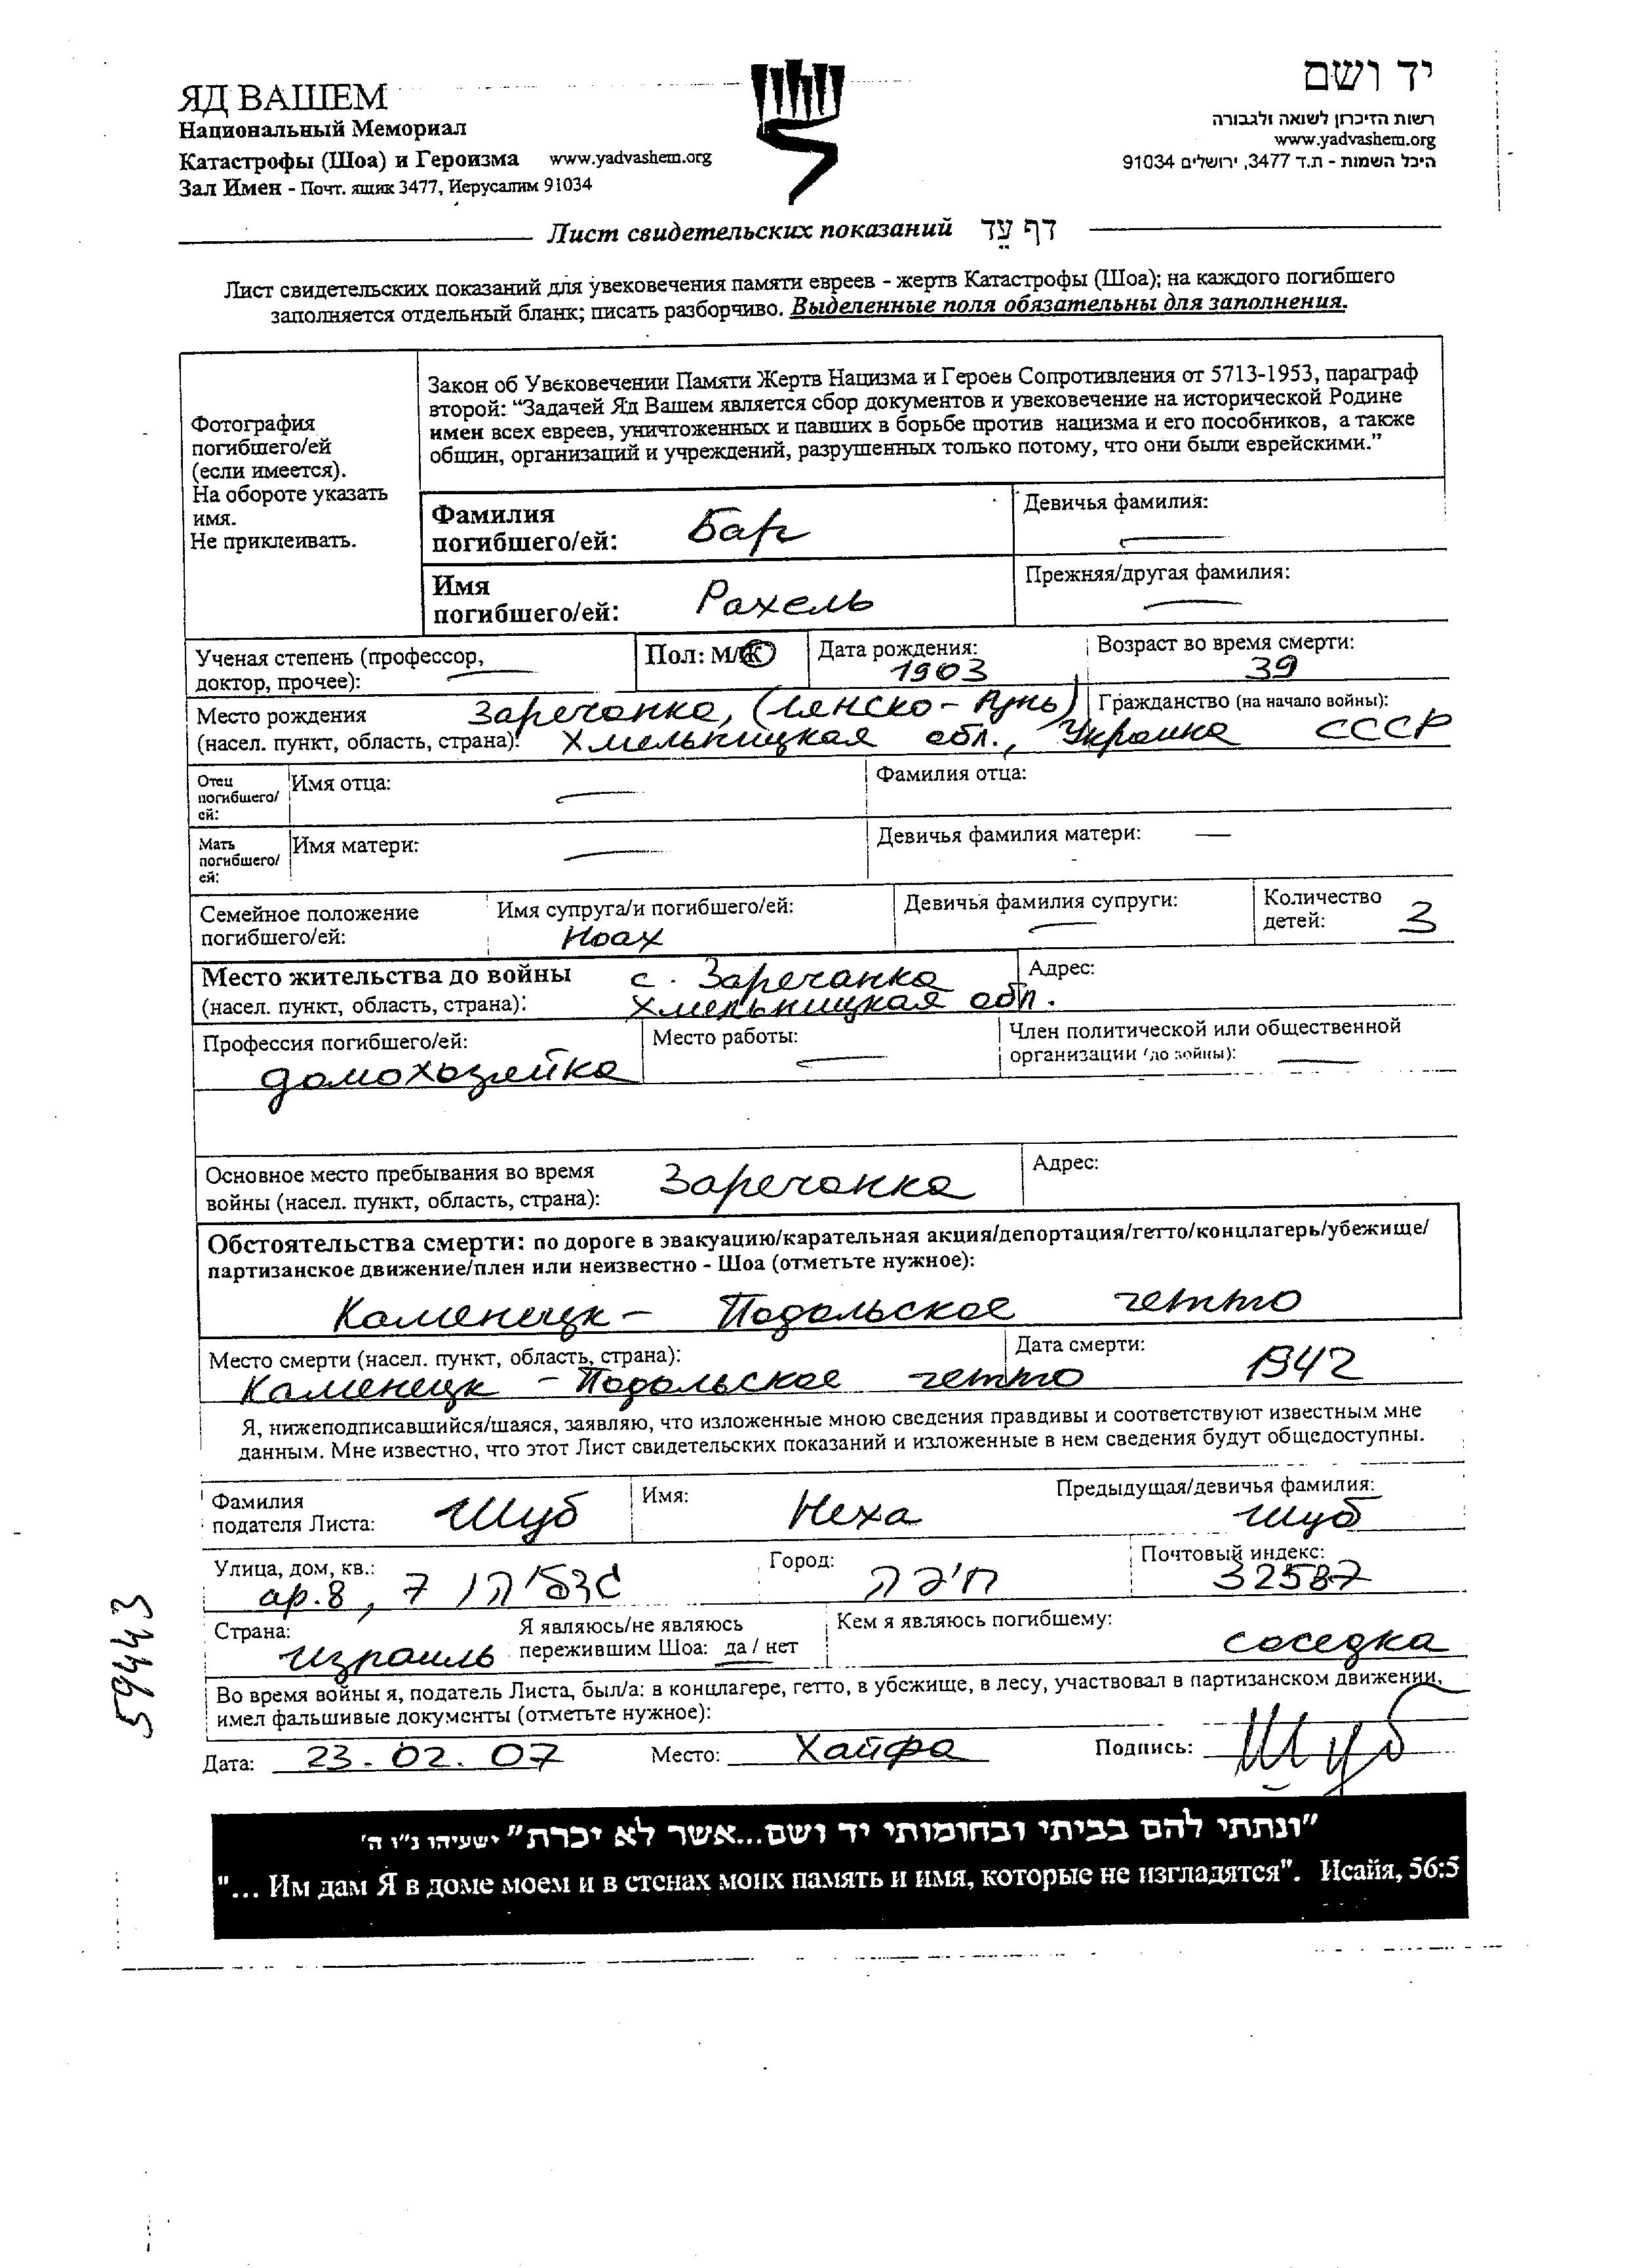 ЯД ВАШЕМ
Национальный Мемориал
Катастрофы (Шоа) и Героизма www.yadvashem.org
Зал Имен - Почт. ящик 3477, Иерусалим 91034
יד ושם
רשות הזיכרון לשואה ולגבורה
www.yadvashem.org
היכל השמות - ת.ד 3477, ירושלים 91034
Лист свидетельских показаний דף עֵד
Лист свидетельских показаний для увековечения памяти евреев - жертв Катастрофы (Шоа); на каждого погибшего
заполняется отдельный бланк; писать разборчиво. Выделенные поля обязательны для заполнения.
Фотография
погибшего/ей
(если имеется).
На обороте указать
имя.
Не приклеивать.
Закон об Увековечении Памяти Жертв Нацизма и Героев Сопротивления от 5713-1953, параграф
второй: “Задачей Яд Вашем является сбор документов и увековечение на исторической Родине
имен всех евреев, уничтоженных и павших в борьбе против нацизма и его пособников, а также
общин, организаций и учреждений, разрушенных только потому, что они были еврейскими.”
Фамилия
погибшего/ей: Бар
Девичья фамилия: —
Имя
погибшего/ей: Рахель
Прежняя/другая фамилия: —
Ученая степень (профессор,
доктор, прочее): —
Пол: М/Ж
Дата рождения:
1903
Возраст во время смерти:
39
Место рождения Заречанка, (Лянско-
(насел. пункт, область, страна): Хмельницкая обл., Украина
Гражданство (на начало войны):
СССР
Отец
погибшего/
ей:
Имя отца: —
Фамилия отца:
Мать
погибшего/
ей:
Имя матери: —
Девичья фамилия матери: —
Семейное положение
погибшего/ей:
Имя супруга/и погибшего/ей:
Ноах
Девичья фамилия супруги:
—
Количество
детей: 3
Место жительства до войны с. Заречанка
(насел. пункт, область, страна): Хмельницкая обл.
Адрес:
Профессия погибшего/ей:
домохозяйка
Место работы:
—
Член политической или общественной
организации (до войны): —
Основное место пребывания во время
войны (насел. пункт, область, страна): Заречанка
Адрес:
Обстоятельства смерти: по дороге в эвакуацию/карательная акция/депортация/гетто/концлагерь/убежище/
партизанское движение/плен или неизвестно - Шоа (отметьте нужное):
Каменецк- Подольское гетто
Место смерти (насел. пункт, область, страна):
Каменецк -Подольское гетто
Дата смерти:
1942
Я, нижеподписавшийся/шаяся, заявляю, что изложенные мною сведения правдивы и соответствуют известным мне
данным. Мне известно, что этот Лист свидетельских показаний и изложенные в нем сведения будут общедоступны.
Фамилия
подателя Листа: Шуб
Имя: Неха
Предыдущая/девичья фамилия:
Шуб
Улица, дом, кв.:
ap.8, 7
Город:
חיפה
Почтовый индекс:
32587
Страна:
Израиль
Я являюсь/не являюсь
пережившим Шоа: да / нет
Кем я являюсь погибшему:
соседка
Во время войны я, податель Листа, был/а: в концлагере, гетто, в убежище, в лесу, участвовал в партизанском движении,
имел фальшивые документы (отметьте нужное):
Дата: 23.02.07 Место: Хайфа Подпись: Шуб
59443
"ונתתי להם בביתי ובחומותי יד ושם...אשר לא יכרת" ישעיהו נ"ו ה'
"... Им дам Я в доме моем и в стенах моих память и имя, которые не изгладятся". Исайя, 56:5